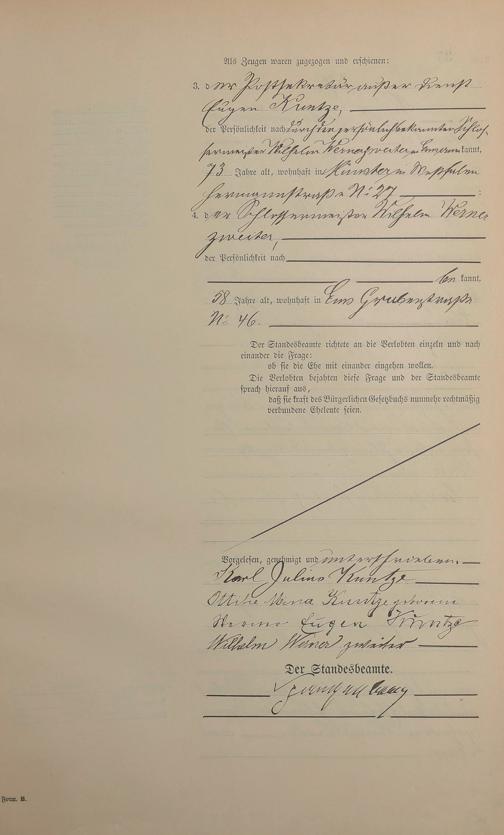 Als Zeugen waren zugezogen und erschienen:
3. der Postsekretär außer Dienst
Eugen Kuntze,
der Persönlichkeit nach durch den persönlich bekannten Schlos-
sermeister Wilhelm Werner zweiter kannt,
73 Jahre alt, wohnhaft in Münster in Westfalen
Hermannstraße No 27
4. der Schlossermeister Wilhelm Werner
zweiter,
der Persönlichkeit nach
be kannt,
58 Jahre alt, wohnhaft in Ems Grabenstraße
No 46.
Der Standesbeamte richtete an die Verlobten einzeln und nach
einander die Frage:
ob sie die Ehe mit einander eingehen wollen.
Die Verlobten bejahten diese Frage und der Standesbeamte
sprach hierauf aus,
daß sie kraft des Bürgerlichen Gesetzbuchs nunmehr rechtmäßig
verbundene Eheleute seien.
Vorgelesen, genehmigt und unterschrieben.
Karl Julius Kuntze
Kuntze geborene
Eugen Kuntze
Wilhelm Werner zweiter
Der Standesbeamte.
Form. B.